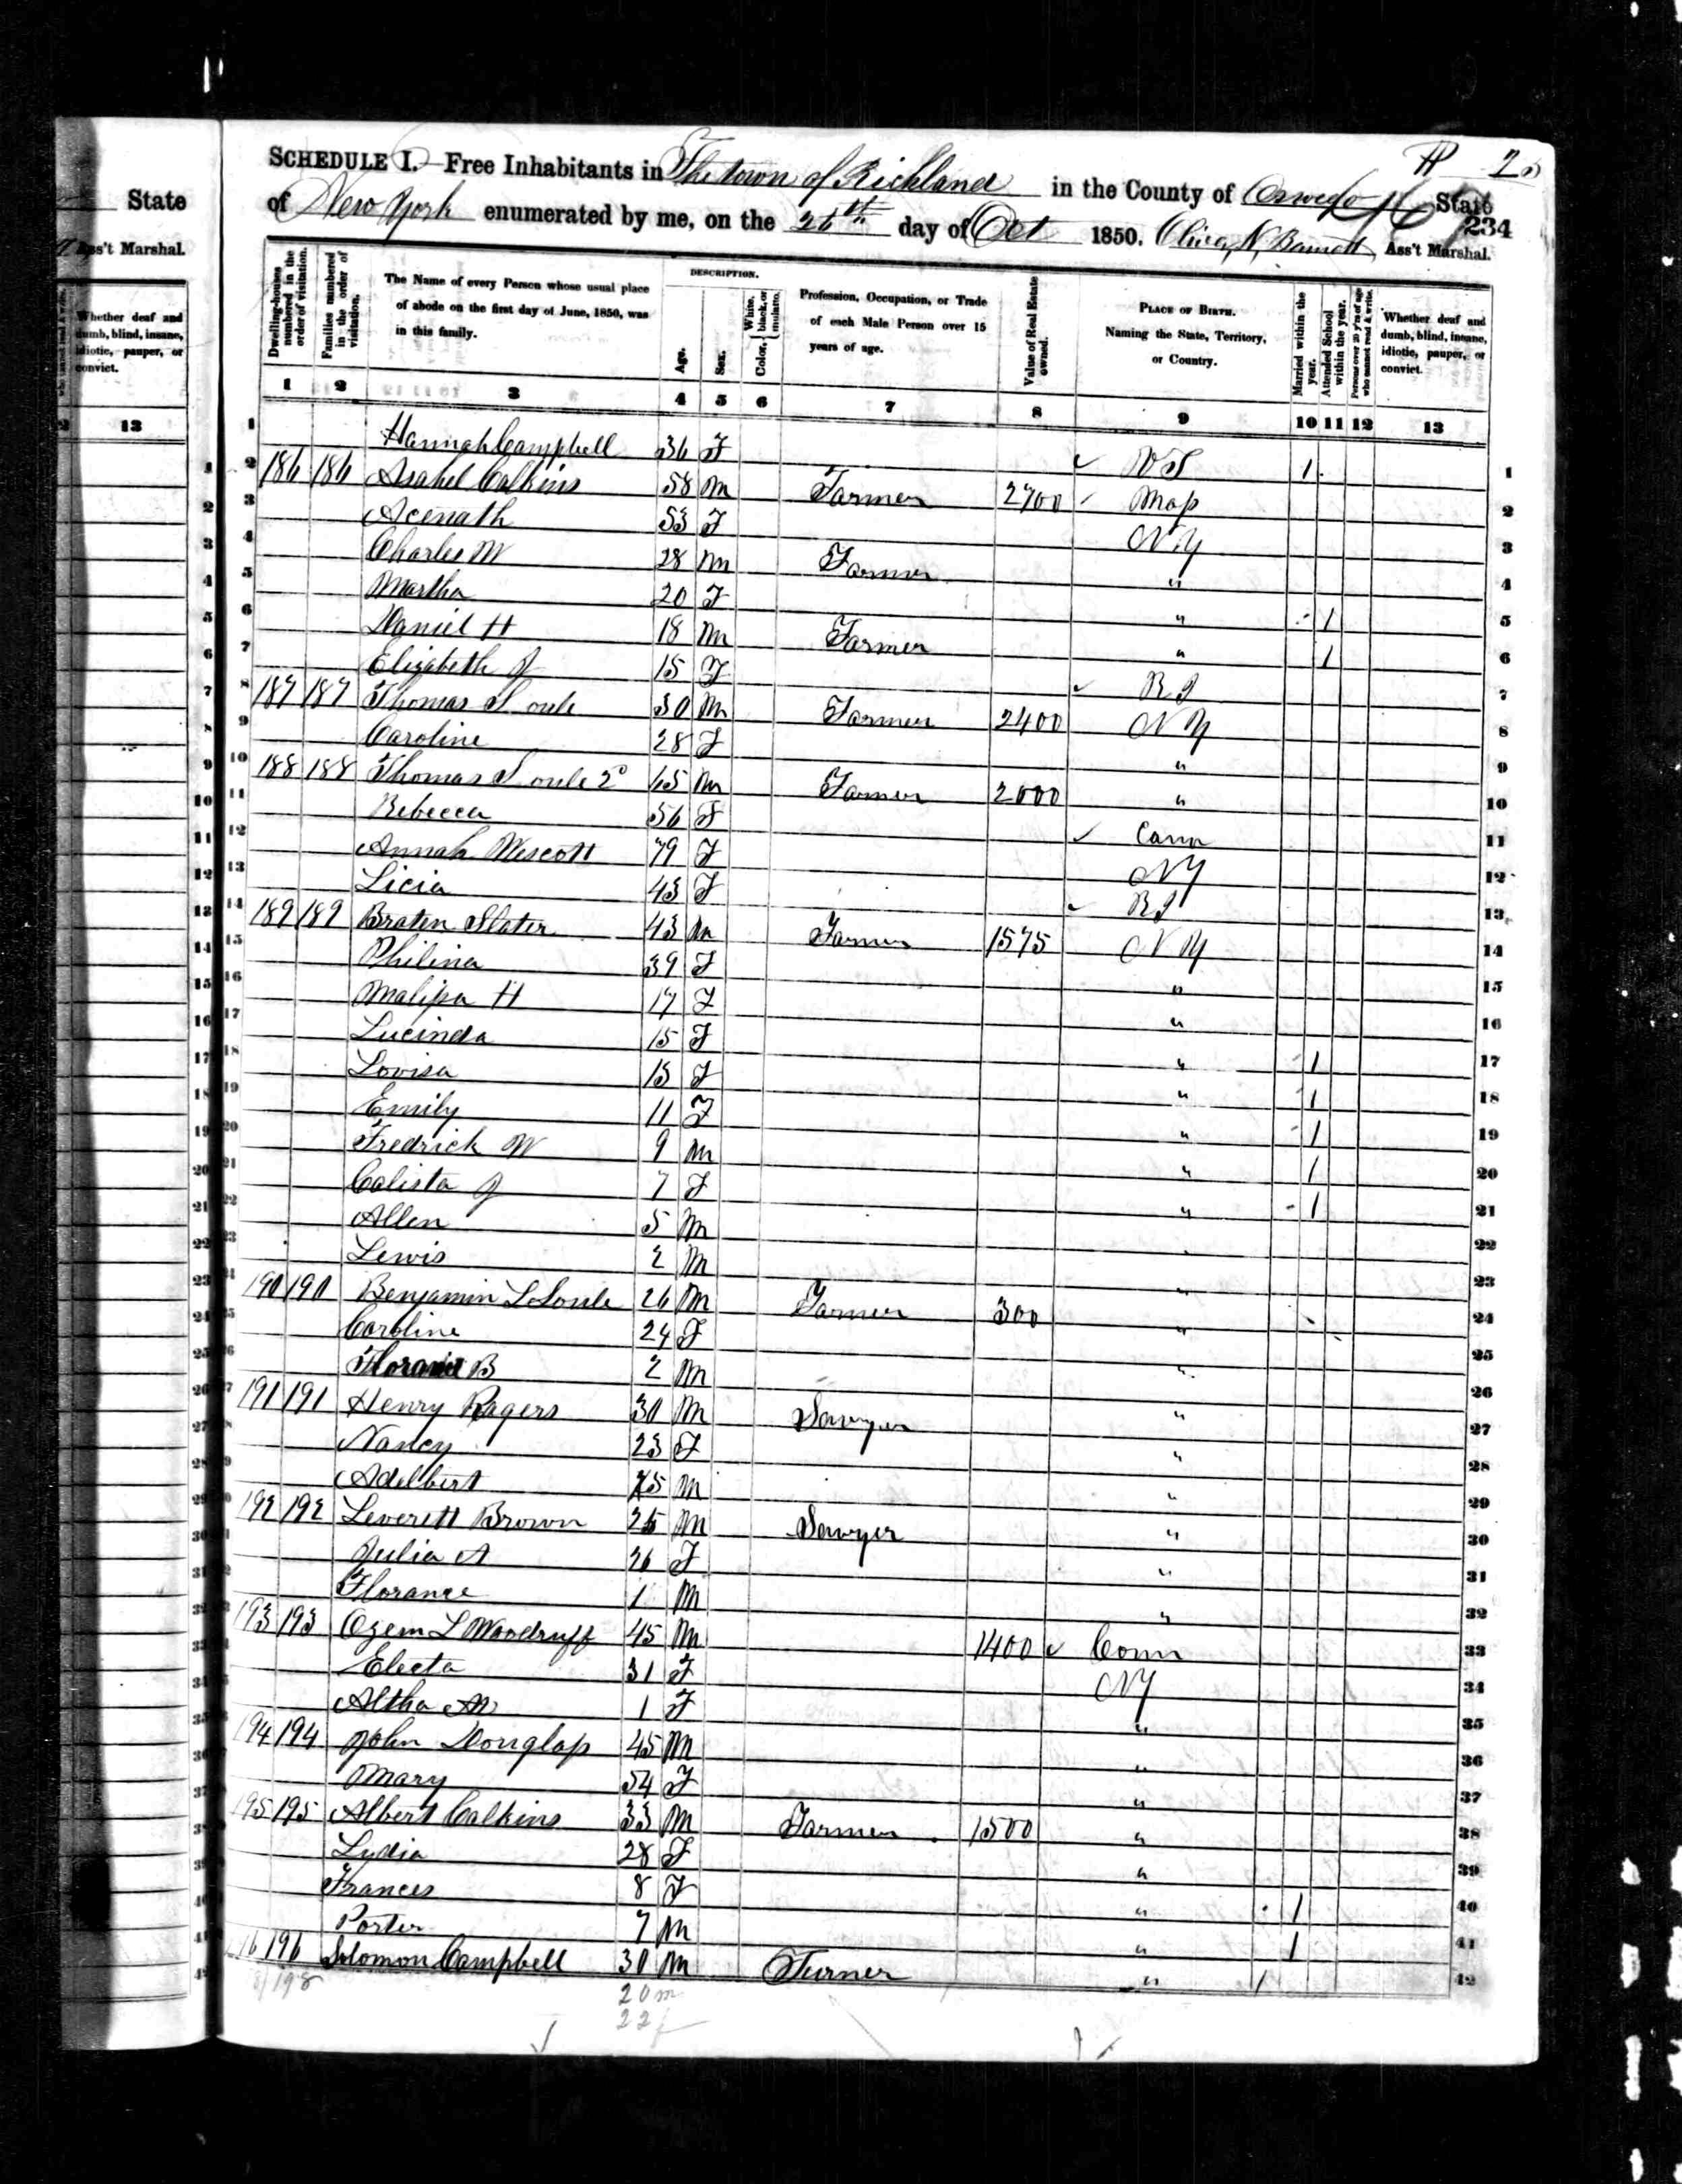 SCHEDULE I.—Free Inhabitants in The town of Richland in the County of Oswego State
of New York enumerated by me, on the 26th day of Oct 1850. Oliver N. Barrett Ass't Marshal.
234
State
Ass't Marshal.
Whether deaf and dumb, blind, insane, idiotic, pauper, or convict.
13
Dwelling-houses numbered in the order of visitation.
Families numbered in the order of visitation.
The Name of every Person whose usual place of abode on the first day of June, 1850, was in this family.
DESCRIPTION.
Age.
Sex.
Color, White, black, or mulatto.
Profession, Occupation, or Trade of each Male Person over 15 years of age.
Value of Real Estate owned.
PLACE OF BIRTH. Naming the State, Territory, or Country.
Married within the year.
Attended School within the year.
Persons over 20 y'rs of age who cannot read & write.
Whether deaf and dumb, blind, insane, idiotic, pauper, or convict.
1 2 3 4 5 6 7 8 9 10 11 12 13
1 Hannah Campbell 36 F ✓ VT 1 1
2 186 186 Asahel Calkins 58 M Farmer 2700 ✓ Mass 2
3 Acenath 53 F NY 3
4 Charles W 28 M Farmer " 4
5 Martha 20 F " 1 5
6 Daniel H 18 M Farmer " 1 6
7 Elizabeth J 15 F ✓ RI 7
8 187 187 Thomas Soule 30 M Farmer 2400 NY 8
9 Caroline 28 F " 9
10 188 188 Thomas Soule 2d 65 M Farmer 2000 " 10
11 Rebecca 56 F ✓ Conn 11
12 Annah Wescott 79 F NY 12
13 Licia 43 F ✓ RI 13
14 189 189 Braten Slater 43 M Farmer 1575 NY 14
15 Philina 39 F " 15
16 Malissa H 17 F " 16
17 Lucinda 15 F " 1 17
18 Lovisa 13 F " 1 18
19 Emily 11 F " 1 19
20 Fredrick W 9 M " 1 20
21 Calista J 7 F " 1 21
22 Allen 5 M 22
23 Lewis 2 M " 23
24 190 190 Benjamin L Soule 26 M Farmer 300 " 24
25 Caroline 24 F " 25
26 B 2 M " 26
27 191 191 Henry Rogers 30 M Sawyer " 27
28 Nancy 23 F " 28
29 Adelbert M " 29
30 192 192 Leverett Brown 25 M Sawyer " 30
31 Julia A 26 F " 31
32 Florance 1 M " 32
33 193 193 Ozem L Woodruff 45 M 1400 ✓ Conn 33
34 Electa 31 F NY 34
35 Altha M 1 F " 35
36 194 194 John Douglass 45 M " 36
37 Mary 54 F " 37
38 195 195 Albert Calkins 33 M Farmer 1500 " 38
39 Lydia 28 F " 39
40 Frances 8 F " 1 40
41 Porter 7 M " 1 41
42 196 Solomon Campbell 30 M Turner " 1 42
198
20 m
22 f